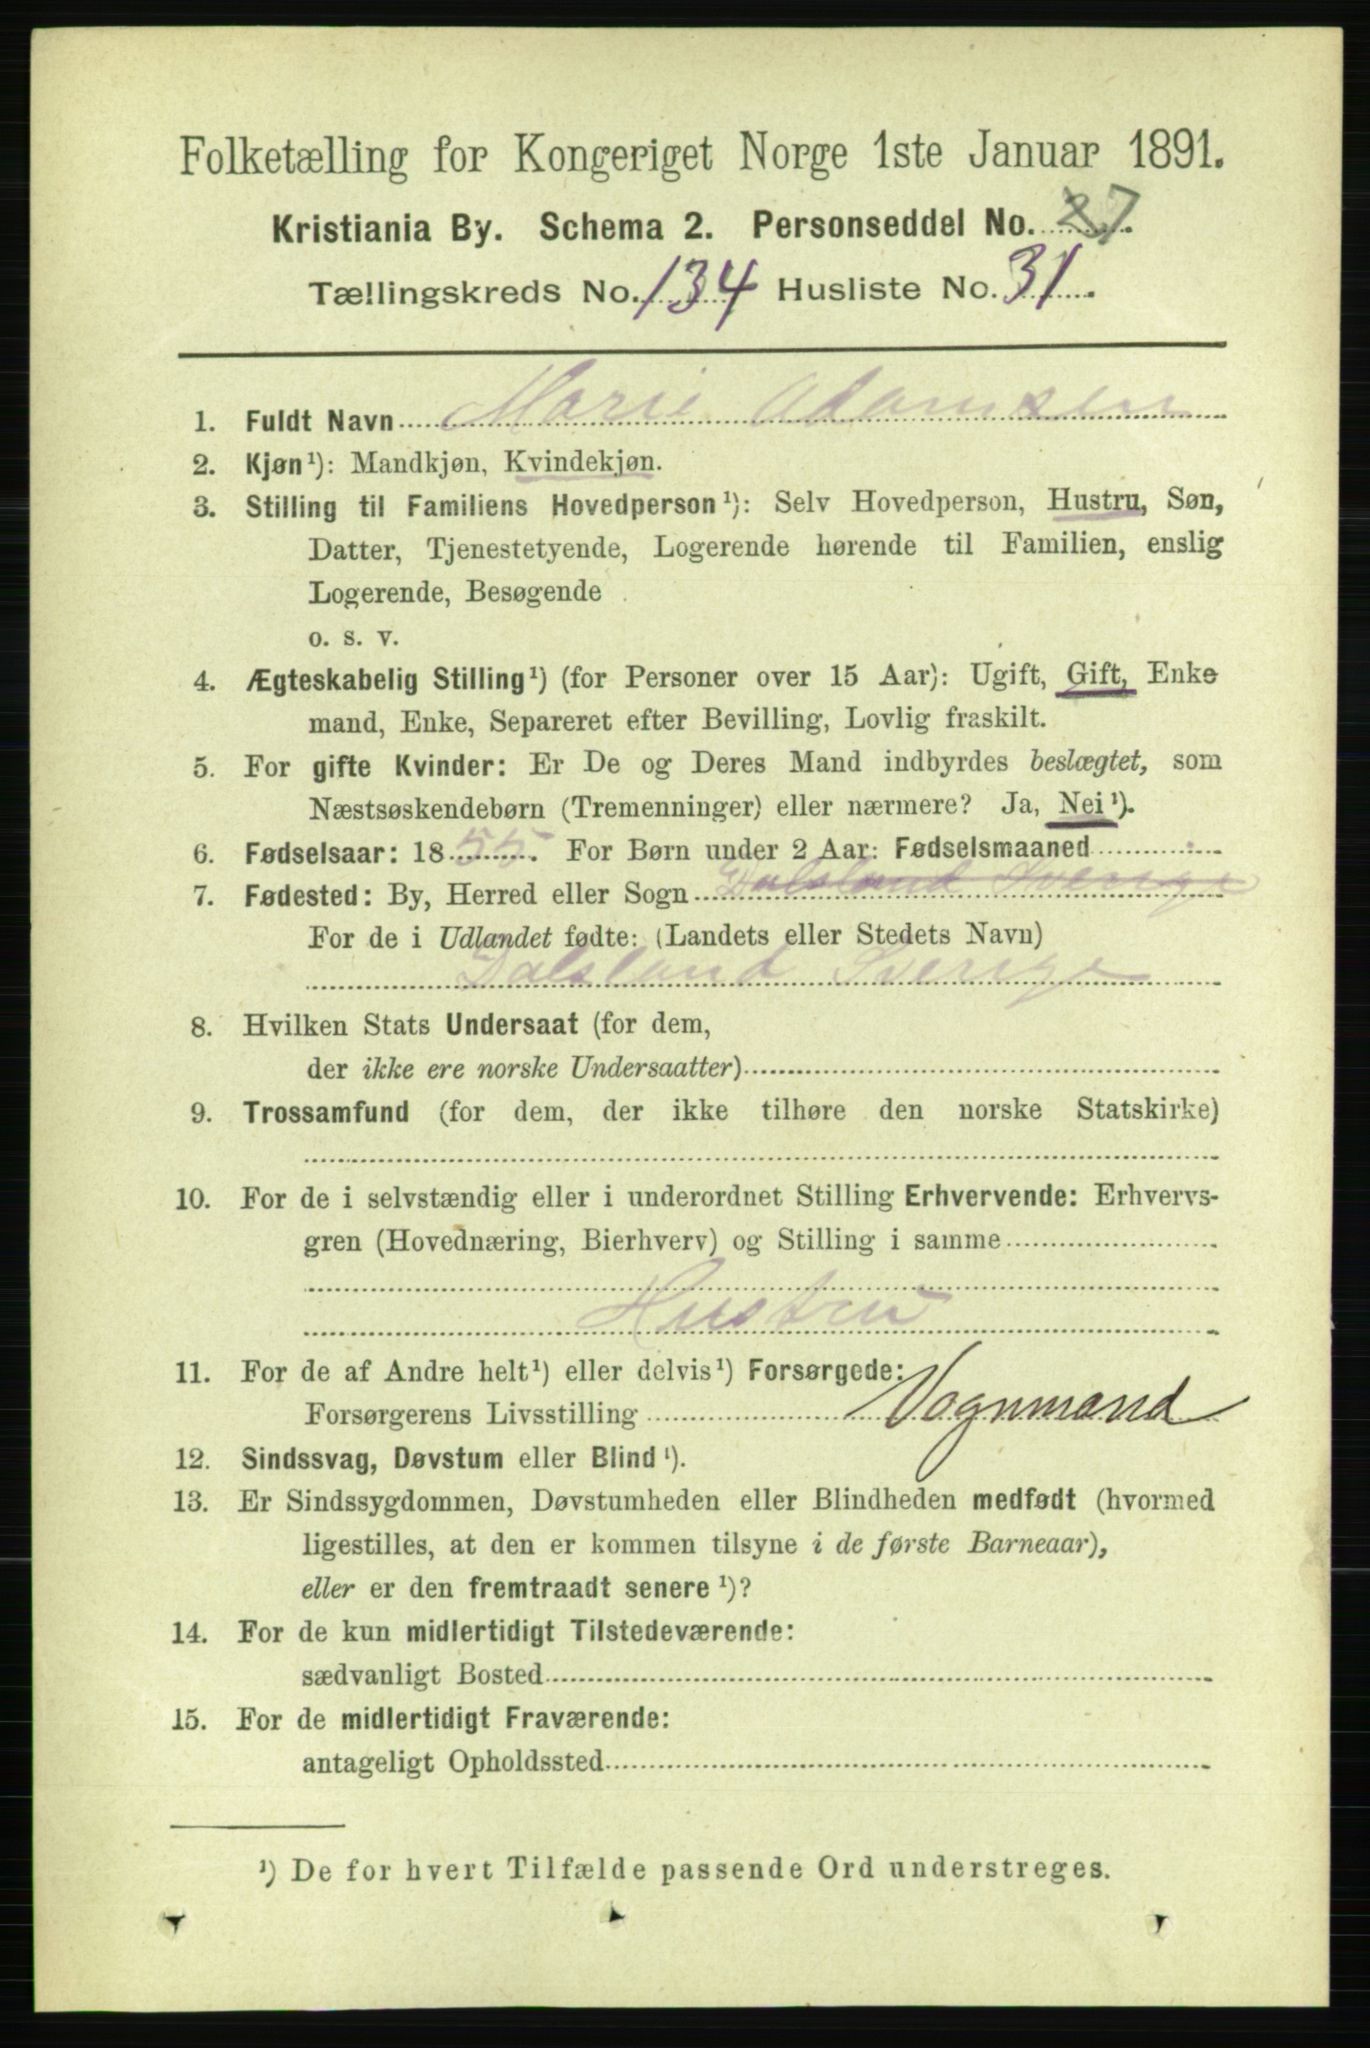 Folketælling for Kongeriget Norge 1ste Januar 1891.
Kristiania By. Schema 2. Personseddel No. 7.
Tællingskreds No. 134 Husliste No. 31.
1. Fuldt Navn Marie Adamsen
2. Kjøn¹): Mandkjøn, Kvindekjøn.
3. Stilling til Familiens Hovedperson¹): Selv Hovedperson, Hustru, Søn,
Datter, Tjenestetyende, Logerende hørende til Familien, enslig
Logerende, Besøgende
o. s. v.
4. Ægteskabelig Stilling¹) (for Personer over 15 Aar): Ugift, Gift, Enke
mand, Enke, Separeret efter Bevilling, Lovlig fraskilt.
5. For gifte Kvinder: Er De og Deres Mand indbyrdes beslægtet, som
Næstsøskendebørn (Tremenninger) eller nærmere? Ja, Nei¹).
6. Fødselsaar: 1855. For Børn under 2 Aar: Fødselsmaaned
7. Fødested: By, Herred eller Sogn Dalsland Sverige
For de i Udlandet fødte: (Landets eller Stedets Navn)
Dalsland Sverige
8. Hvilken Stats Undersaat (for dem,
der ikke ere norske Undersaatter)
9. Trossamfund (for dem, der ikke tilhøre den norske Statskirke)
10. For de i selvstændig eller i underordnet Stilling Erhvervende: Erhvervs-
gren (Hovednæring, Bierhverv) og Stilling i samme
Hustru
11. For de af Andre helt¹) eller delvis¹) Forsørgede:
Forsørgerens Livsstilling Vognmand
12. Sindssvag, Døvstum eller Blind¹).
13. Er Sindssygdommen, Døvstumheden eller Blindheden medfødt (hvormed
ligestilles, at den er kommen tilsyne i de første Barneaar),
eller er den fremtraadt senere¹)?
14. For de kun midlertidigt Tilstedeværende:
sædvanligt Bosted
15. For de midlertidigt Fraværende:
antageligt Opholdssted
¹) De for hvert Tilfælde passende Ord understreges.